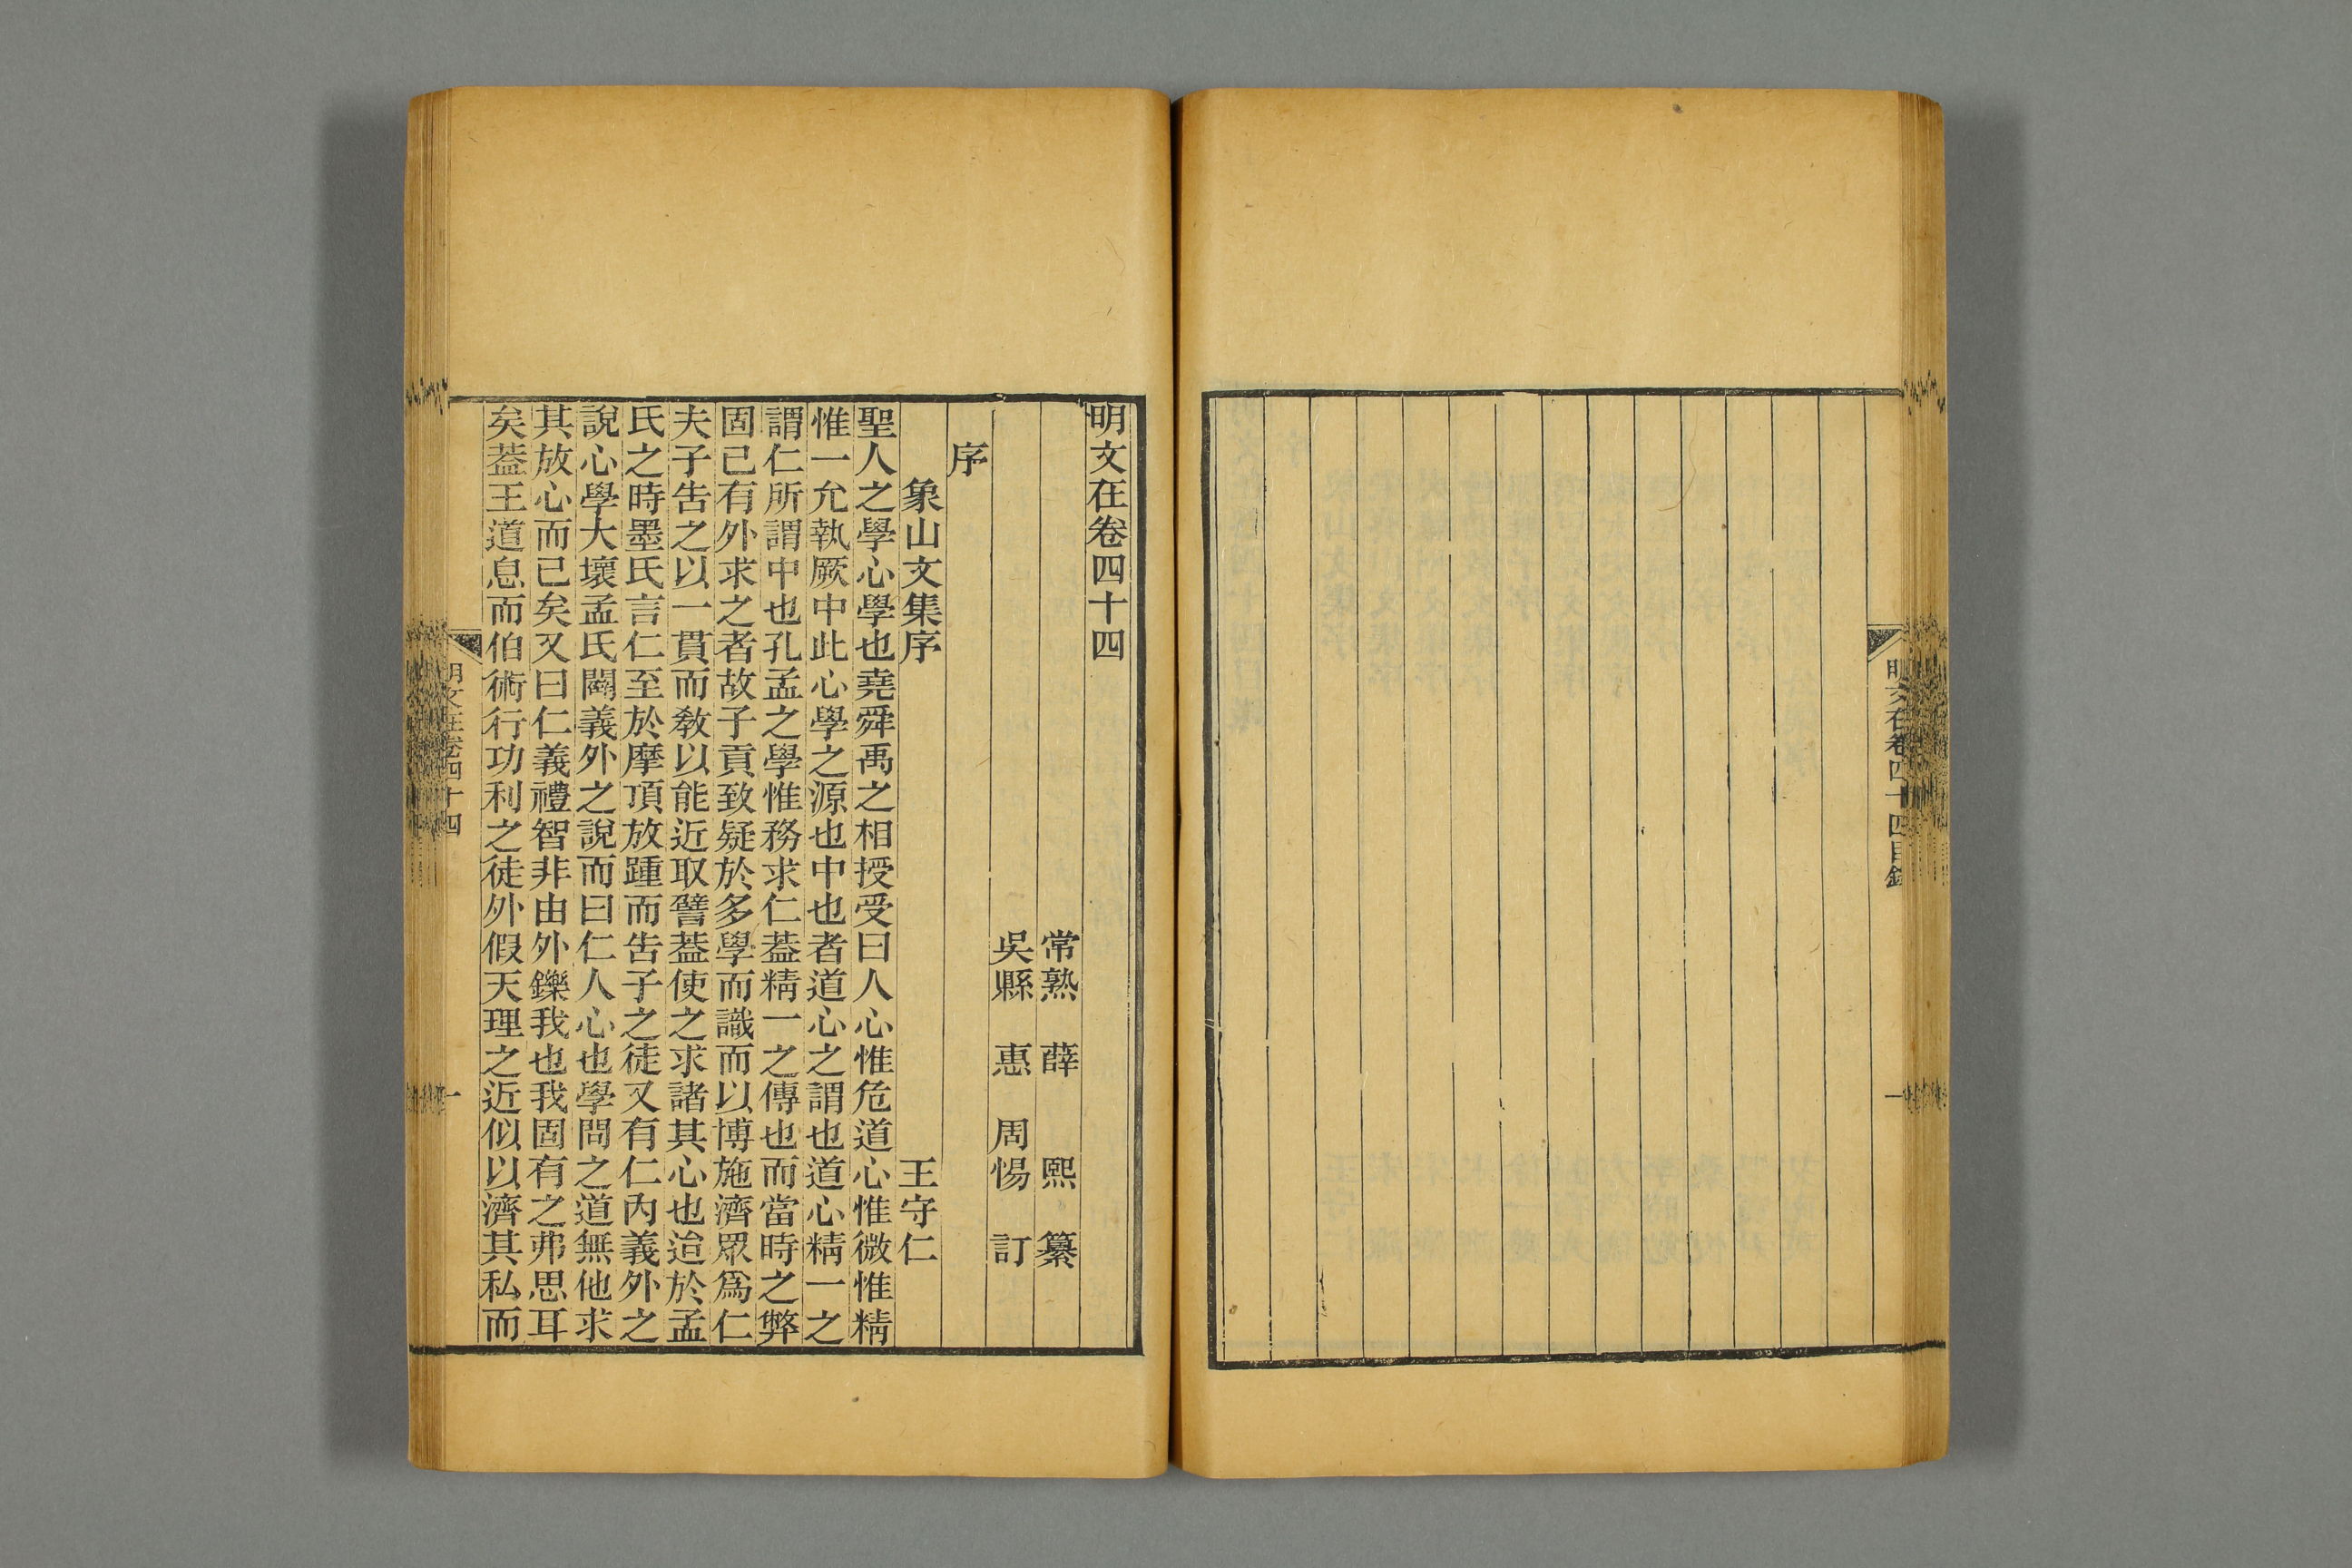 明文在卷四十四目錄
一
明文在卷四十四
常熟　薛　熙　纂
吳縣　惠　周惕　訂
序
象山文集序　王守仁
聖人之學心學也堯舜禹之相授受曰人心惟危道心惟微惟精
惟一允執厥中此心學之源也中也者道心之謂也道心精一之
謂仁所謂中也孔孟之學惟務求仁葢精一之傳也而當時之弊
固已有外求之者故子貢致疑於多學而識而以博施濟眾爲仁
夫子告之以一貫而敎以能近取譬葢使之求諸其心也迨於孟
氏之時墨氏言仁至於摩頂放踵而告子之徒又有仁內義外之
說心學大壞孟氏闢義外之說而曰仁人心也學問之道無他求
其放心而已矣又曰仁義禮智非由外鑠我也我固有之弗思耳
矣葢王道息而伯術行功利之徒外假天理之近似以濟其私而
明文在卷四十四
一